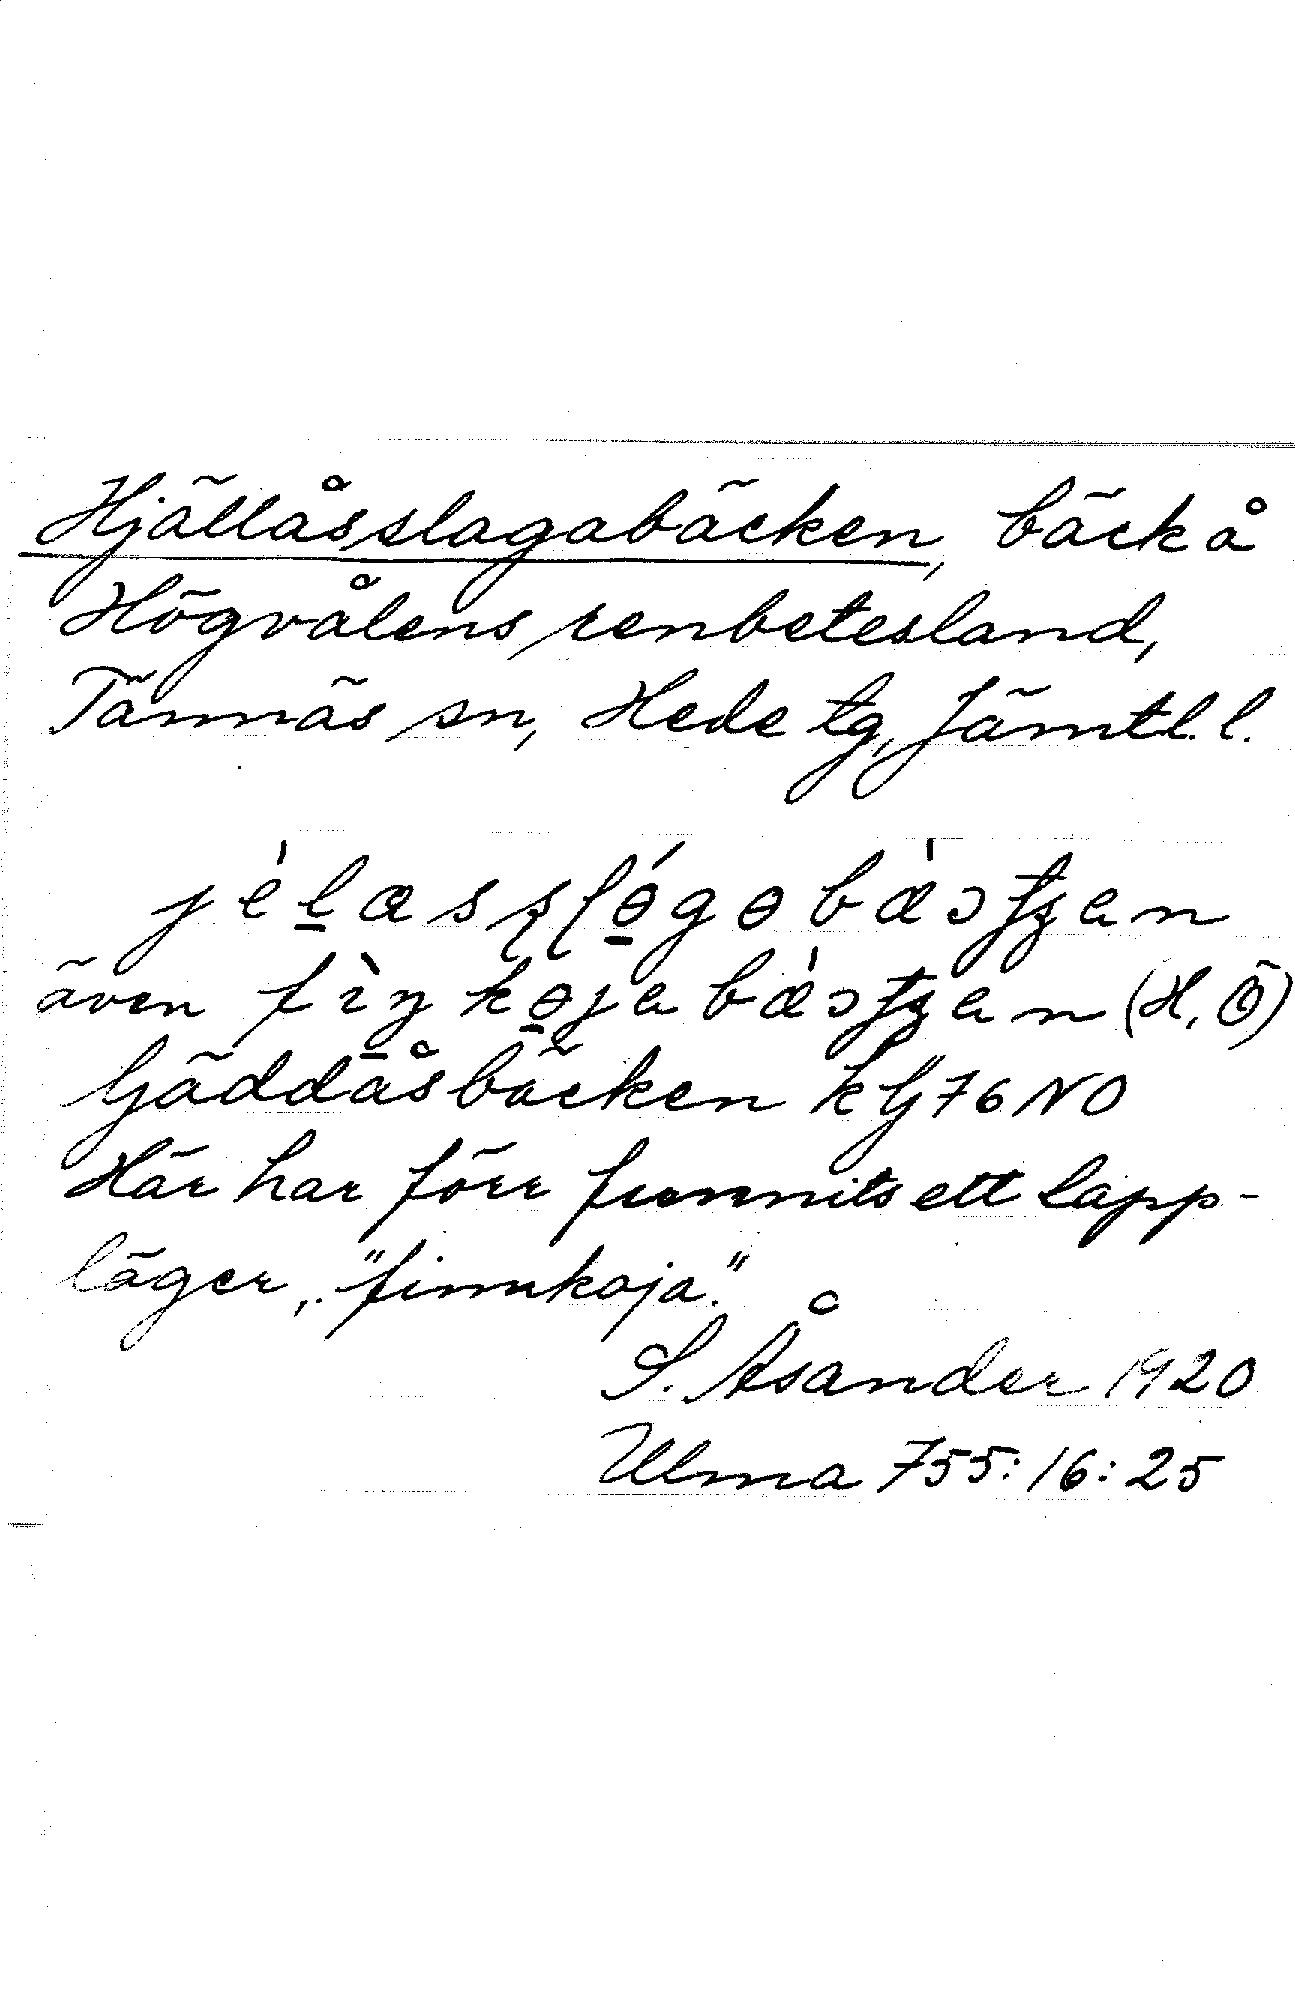 Hjällåsslagabäcken, bäck å
Högvålens renbetesland,
Tännäs sn, Hede tg, Jämtl. l.
även (H, Ö)
Gäddåsbäcken kG76NO
Här har förr funnits ett lapp-
läger, "finnkoja."
S. Åsander 1920
Ulma 755:16:25